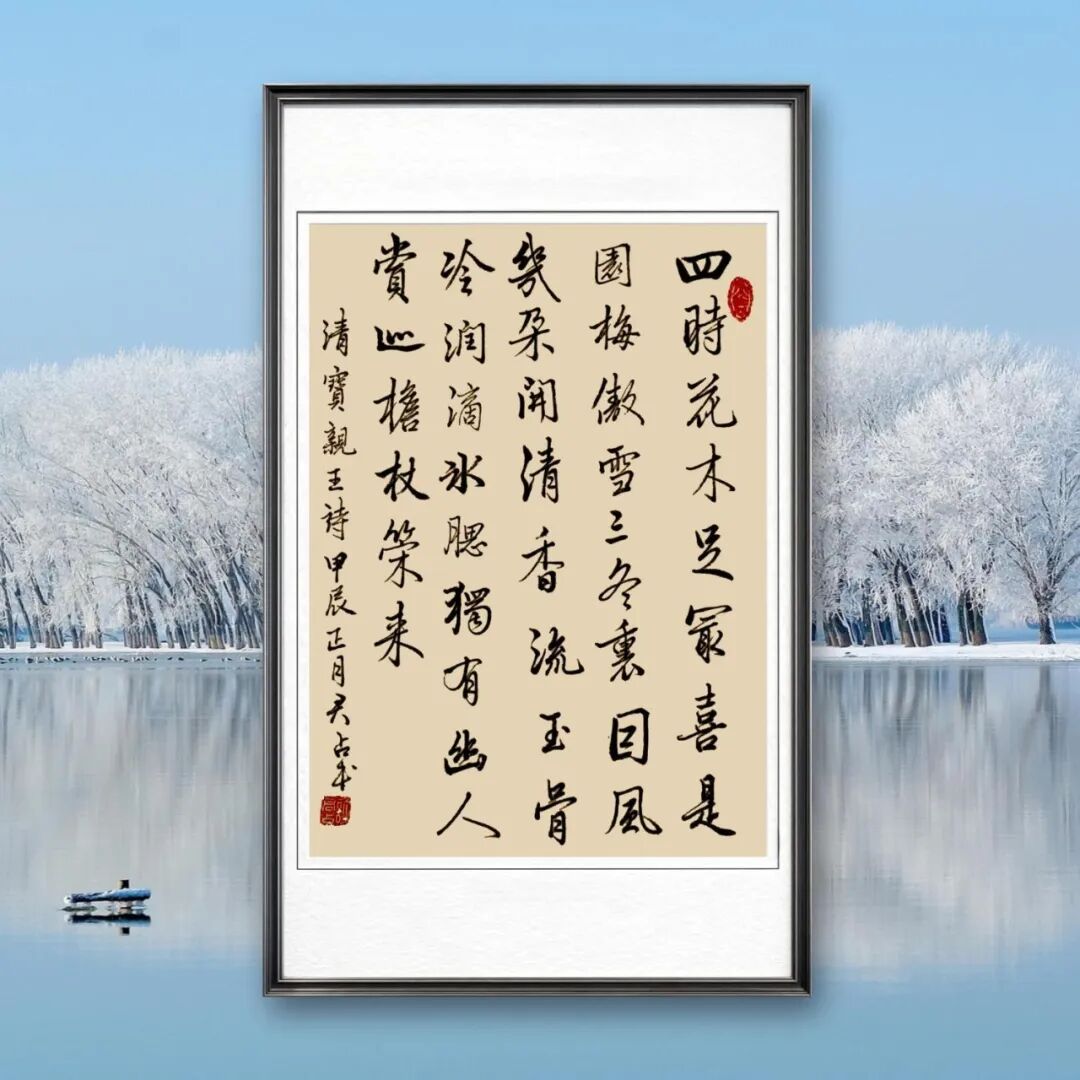 四時花木足冣喜是
園梅傲雪三冬裏囘風
幾朵開清香流玉骨
冷潤滴冰腮獨有幽人
賞巡檐杖策来
清寶親王詩甲辰正月